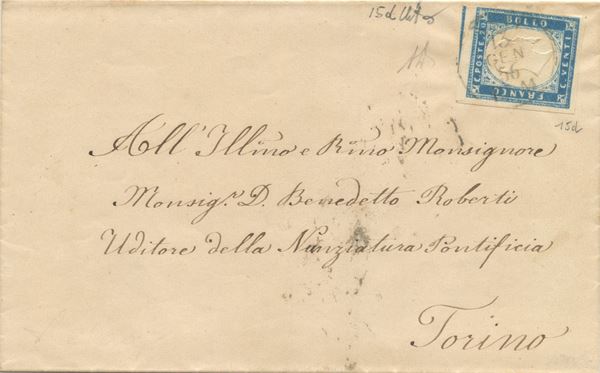 15d
C. POSTE 20
BOLLO
C. VENTI
FRANCO
13
GEN
56
15d
All'Illmo e Rmo Monsignore
Monsig.r D. Benedetto Roberti
Uditore della Nunziatura Pontificia
Torino